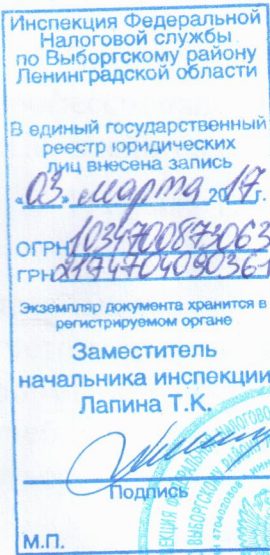 Инспекция Федеральной
Налоговой службы
по Выборгскому району
Ленинградской области
В единый государственный
реестр юридических
лиц внесена запись
«03» марта 2017г.
ОГРН 1034700873063
ГРН 2174704090361
Экземпляр документа хранится в
регистрируемом органе
Заместитель
начальника инспекции
Лапина Т.К.
Подпись
М.П.